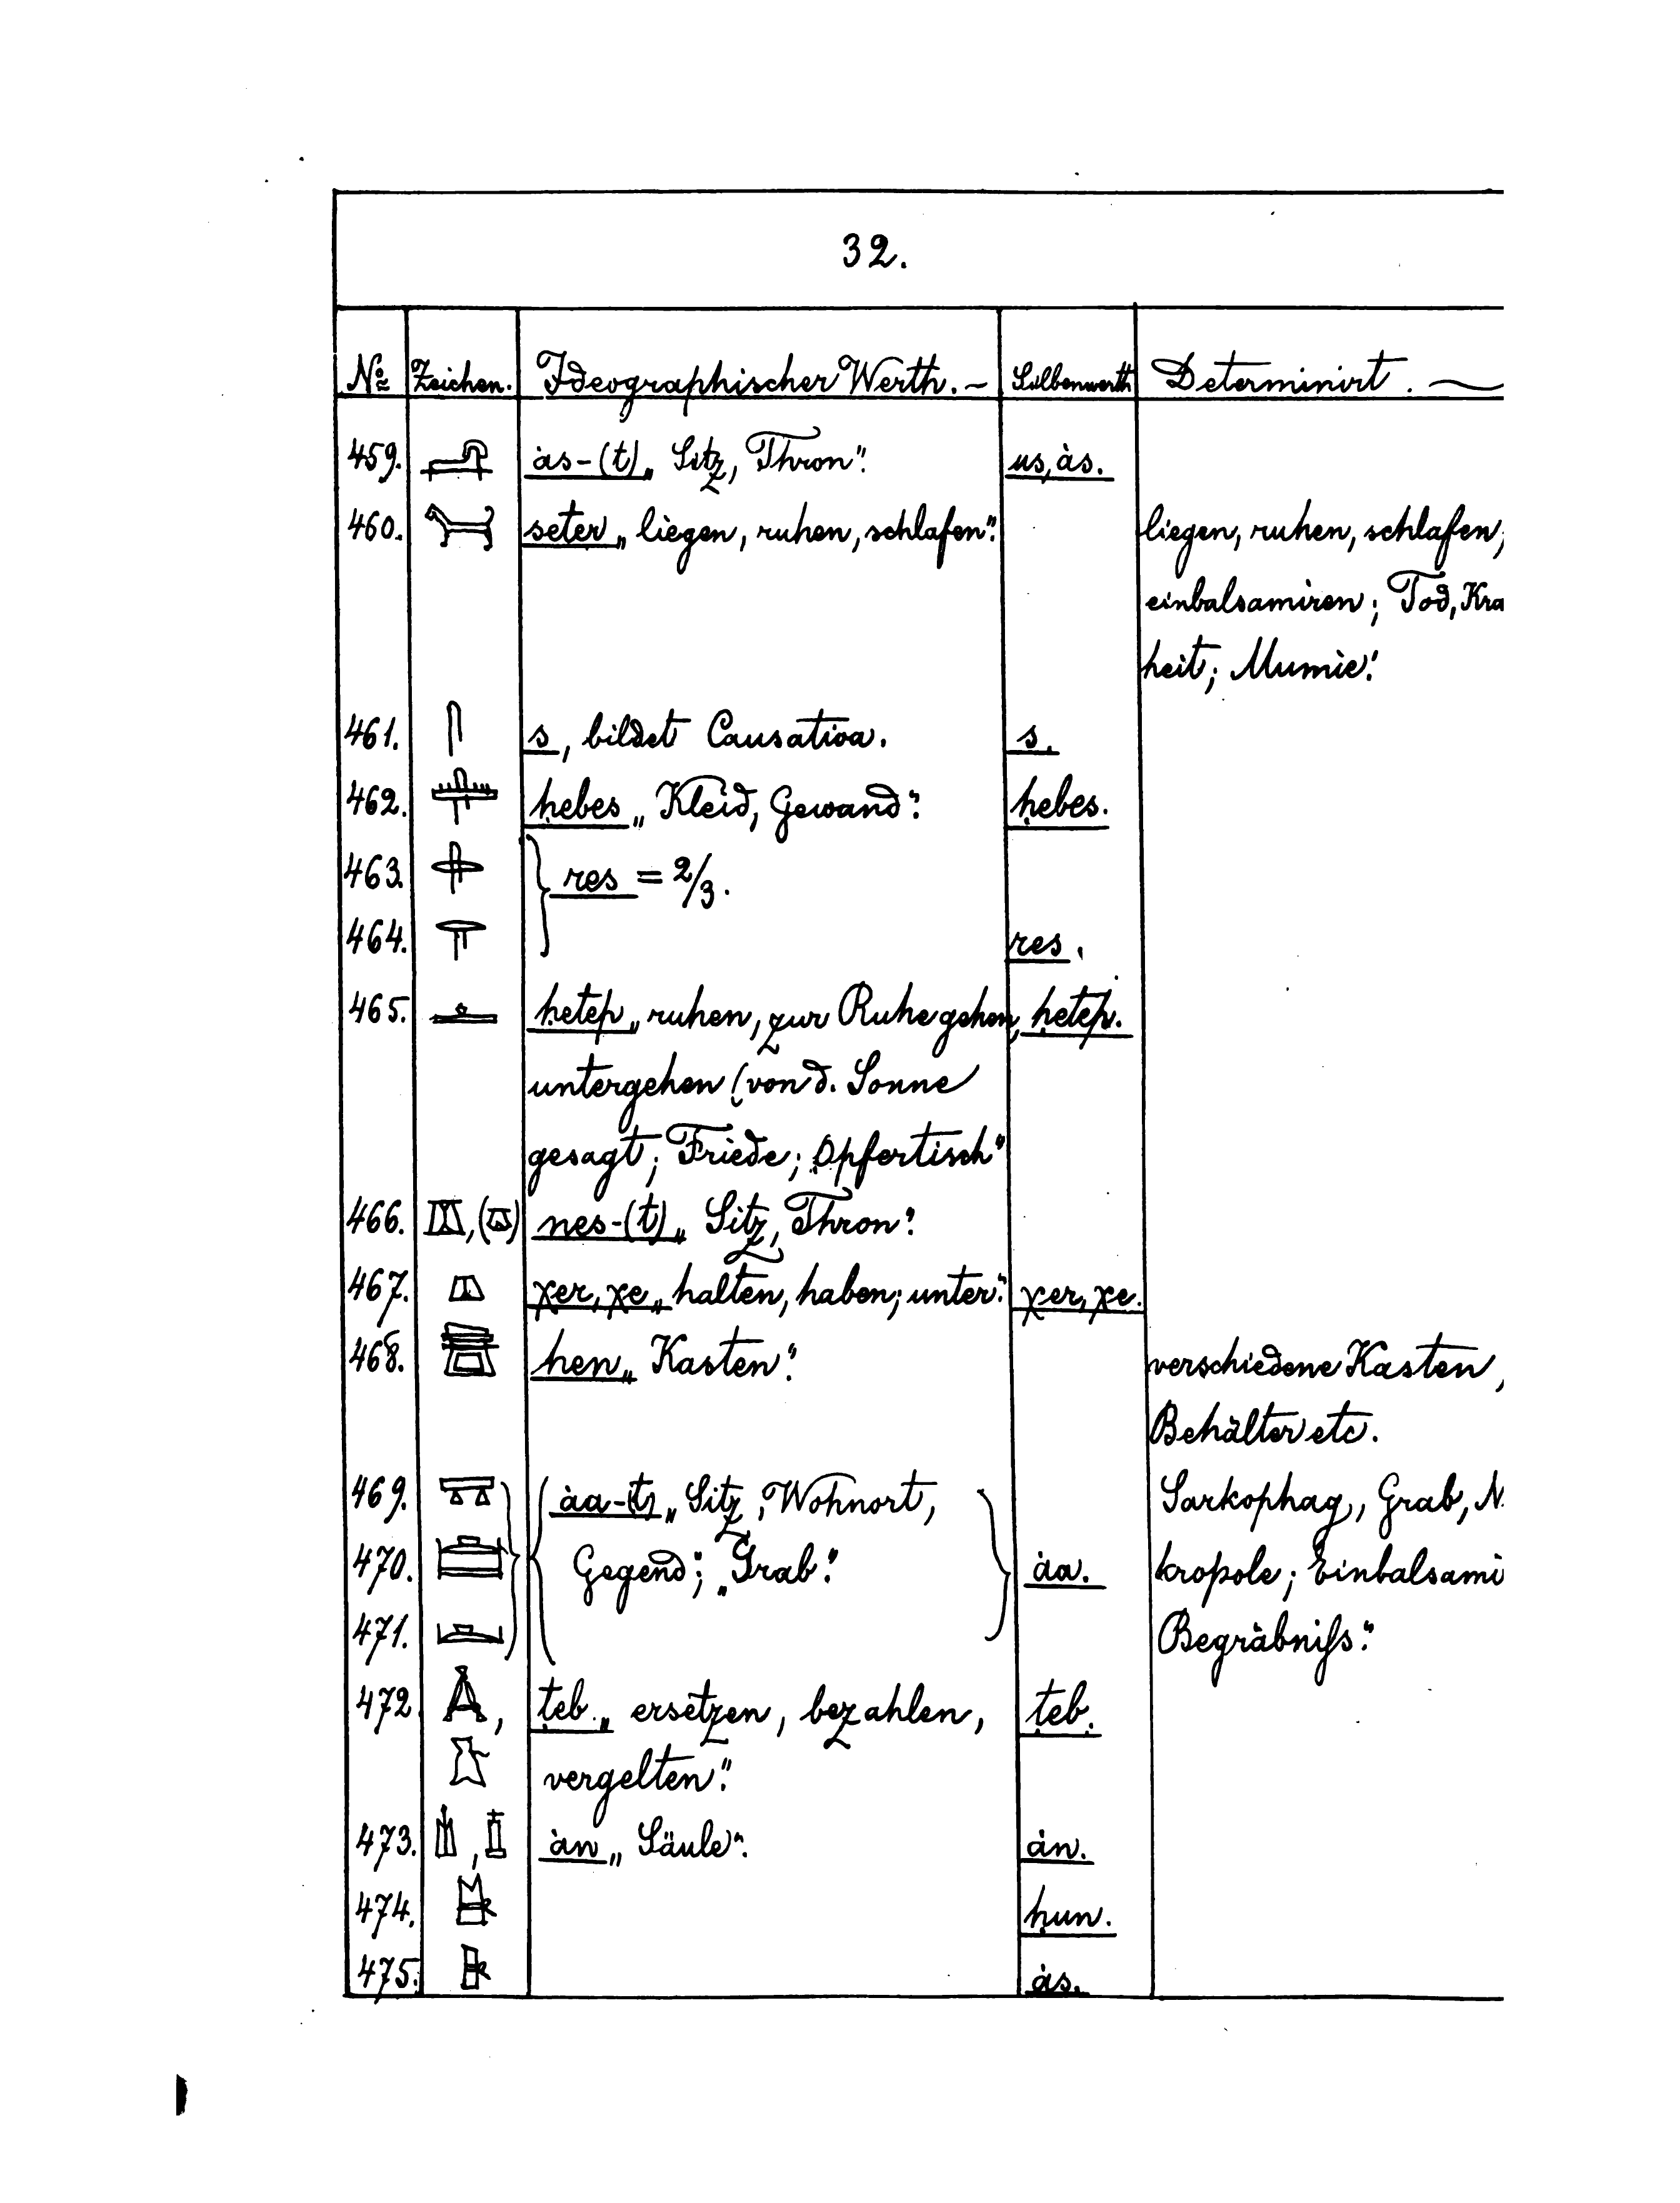 32.
No Zeichen. Ideographischer Werth. – Sylbenwerth Determinirt. —
459. ȧs-(t) „Sitz, Thron". us, ȧs.
460. seter „liegen, ruhen, schlafen". liegen, ruhen, schlafen,
einbalsamiren; Tod, Kra
heit; Mumie".
461. s, bildet Causativa. s.
462. ḥebes „Kleid, Gewand". ḥebes.
463. res = 2/3.
464. res.
465. ḥetep „ruhen, zur Ruhe gehen, ḥetep.
untergehen (von d. Sonne
gesagt; Friede; Opfertisch"
466. , ( ) nes-(t) „Sitz, Thron".
467. χer, χe „halten, haben; unter". χer, χe.
468. hen „Kasten". verschiedene Kasten,
Behälter etc.
469. ȧa-(t) „Sitz, Wohnort, Sarkophag, Grab, N
470. Gegend; „Grab". ȧa. kropole; Einbalsami
471. Begräbniſs."
472. , ṭeb „ersetzen, bezahlen, ṭeb.
vergelten".
473. , ȧn „Säule". ȧn.
474. ḥun.
475. ȧs.